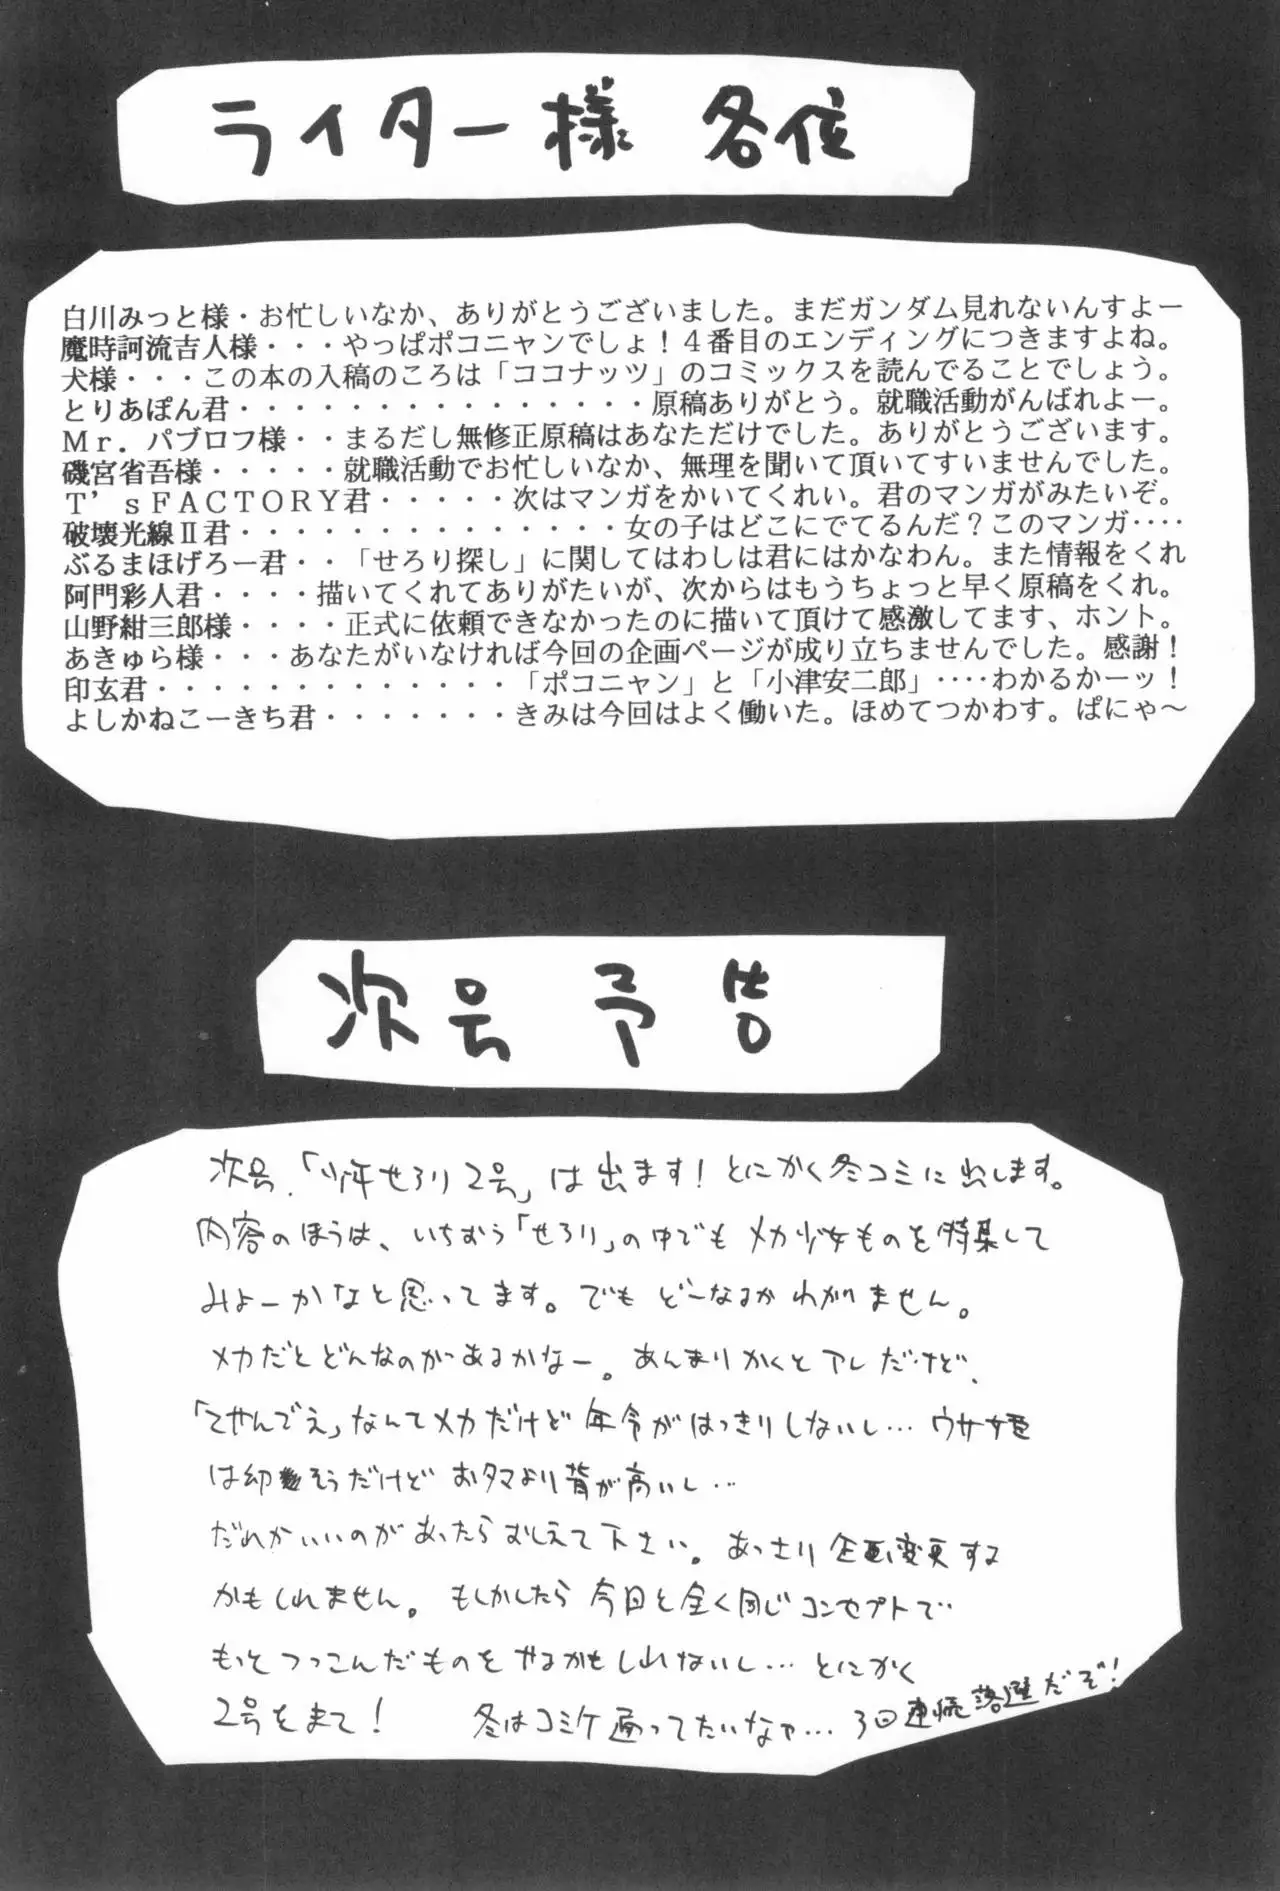 ライター様 各位
白川みっと様・お忙しいなか、ありがとうございました。まだガンダム見れないんすよー
魔時訶流吉人様・・・やっぱポコニャンでしょ！４番目のエンディングにつきますよね。
犬様・・・この本の入稿のころは「ココナッツ」のコミックスを読んでることでしょう。
とりあぽん君・・・・・・・・・・・・・・・原稿ありがとう。就職活動がんばれよー。
Ｍｒ．パブロフ様・・まるだし無修正原稿はあなただけでした。ありがとうございます。
磯宮省吾様・・・・・就職活動でお忙しいなか、無理を聞いて頂いてすいませんでした。
Ｔ’ｓＦＡＣＴＯＲＹ君・・・・・次はマンガをかいてくれい。君のマンガがみたいぞ。
破壊光線Ⅱ君・・・・・・・・・・・・・・女の子はどこにでてるんだ？このマンガ‥‥
ぶるまほげろー君・・「せろり探し」に関してはわしは君にはかなわん。また情報をくれ
阿門彩人君・・・・描いてくれてありがたいが、次からはもうちょっと早く原稿をくれ。
山野紺三郎様・・・・正式に依頼できなかったのに描いて頂けて感激してます、ホント。
あきゅら様・・・あなたがいなければ今回の企画ページが成り立ちませんでした。感謝！
印玄君・・・・・・・・・・・・・「ポコニャン」と「小津安二郎」‥‥わかるかーッ！
よしかねこーきち君・・・・・・・きみは今回はよく働いた。ほめてつかわす。ぱにゃ～
次号 予告
次号、「少年せろり2号」は出ます！とにかく冬コミに出します。
内容のほうは、いちおう「せろり」の中でもメカ少女ものを特集して
みよーかなと思ってます。でもどーなるかわかりません。
メカだとどんなのがあるかなー。あんまりかくとアレだけど、
なんてメカだけど年令がはっきりしないし…ウサ姫
は幼そうだけどおタマより背が高いし…
だれかいいのがあったらおしえて下さい。あっさり企画変更する
かもしれません。もしかしたら今回と全く同じコンセプトで
もっとつっこんだものをやるかもしれないし…とにかく
2号をまて！ 冬はコミケ通ってたいなァ…3回連続落選だぞ！